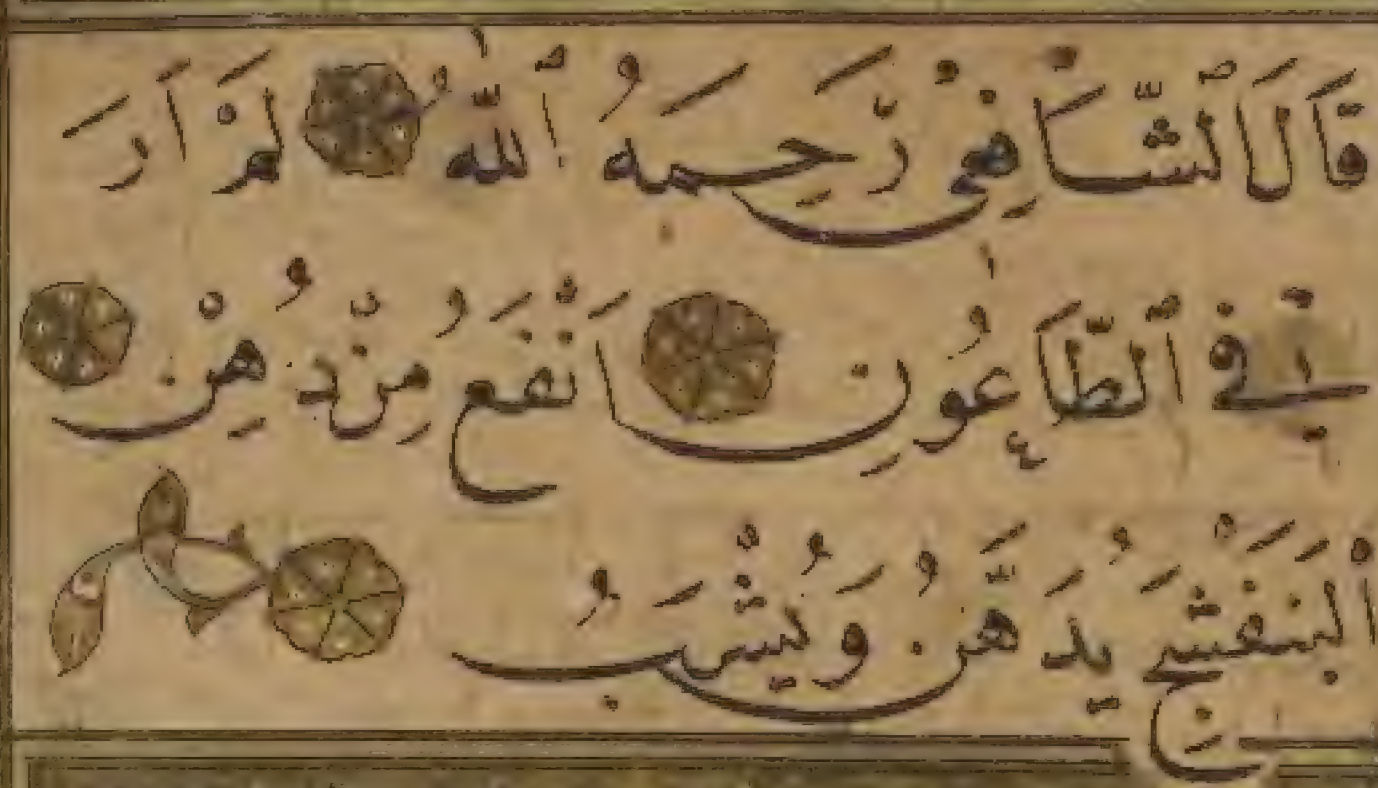 قَالَ ٱلشَّافِعِيُّ رَحِمَهُ ٱللّٰهُ لَمْ أَرَ
فِي ٱلطَّاعُونِ أَنْفَعُ مِنْ دُهْنِ
ٱلْبَنَفْسَجِ يُدَهَّنُ وَيُشْرَبُ